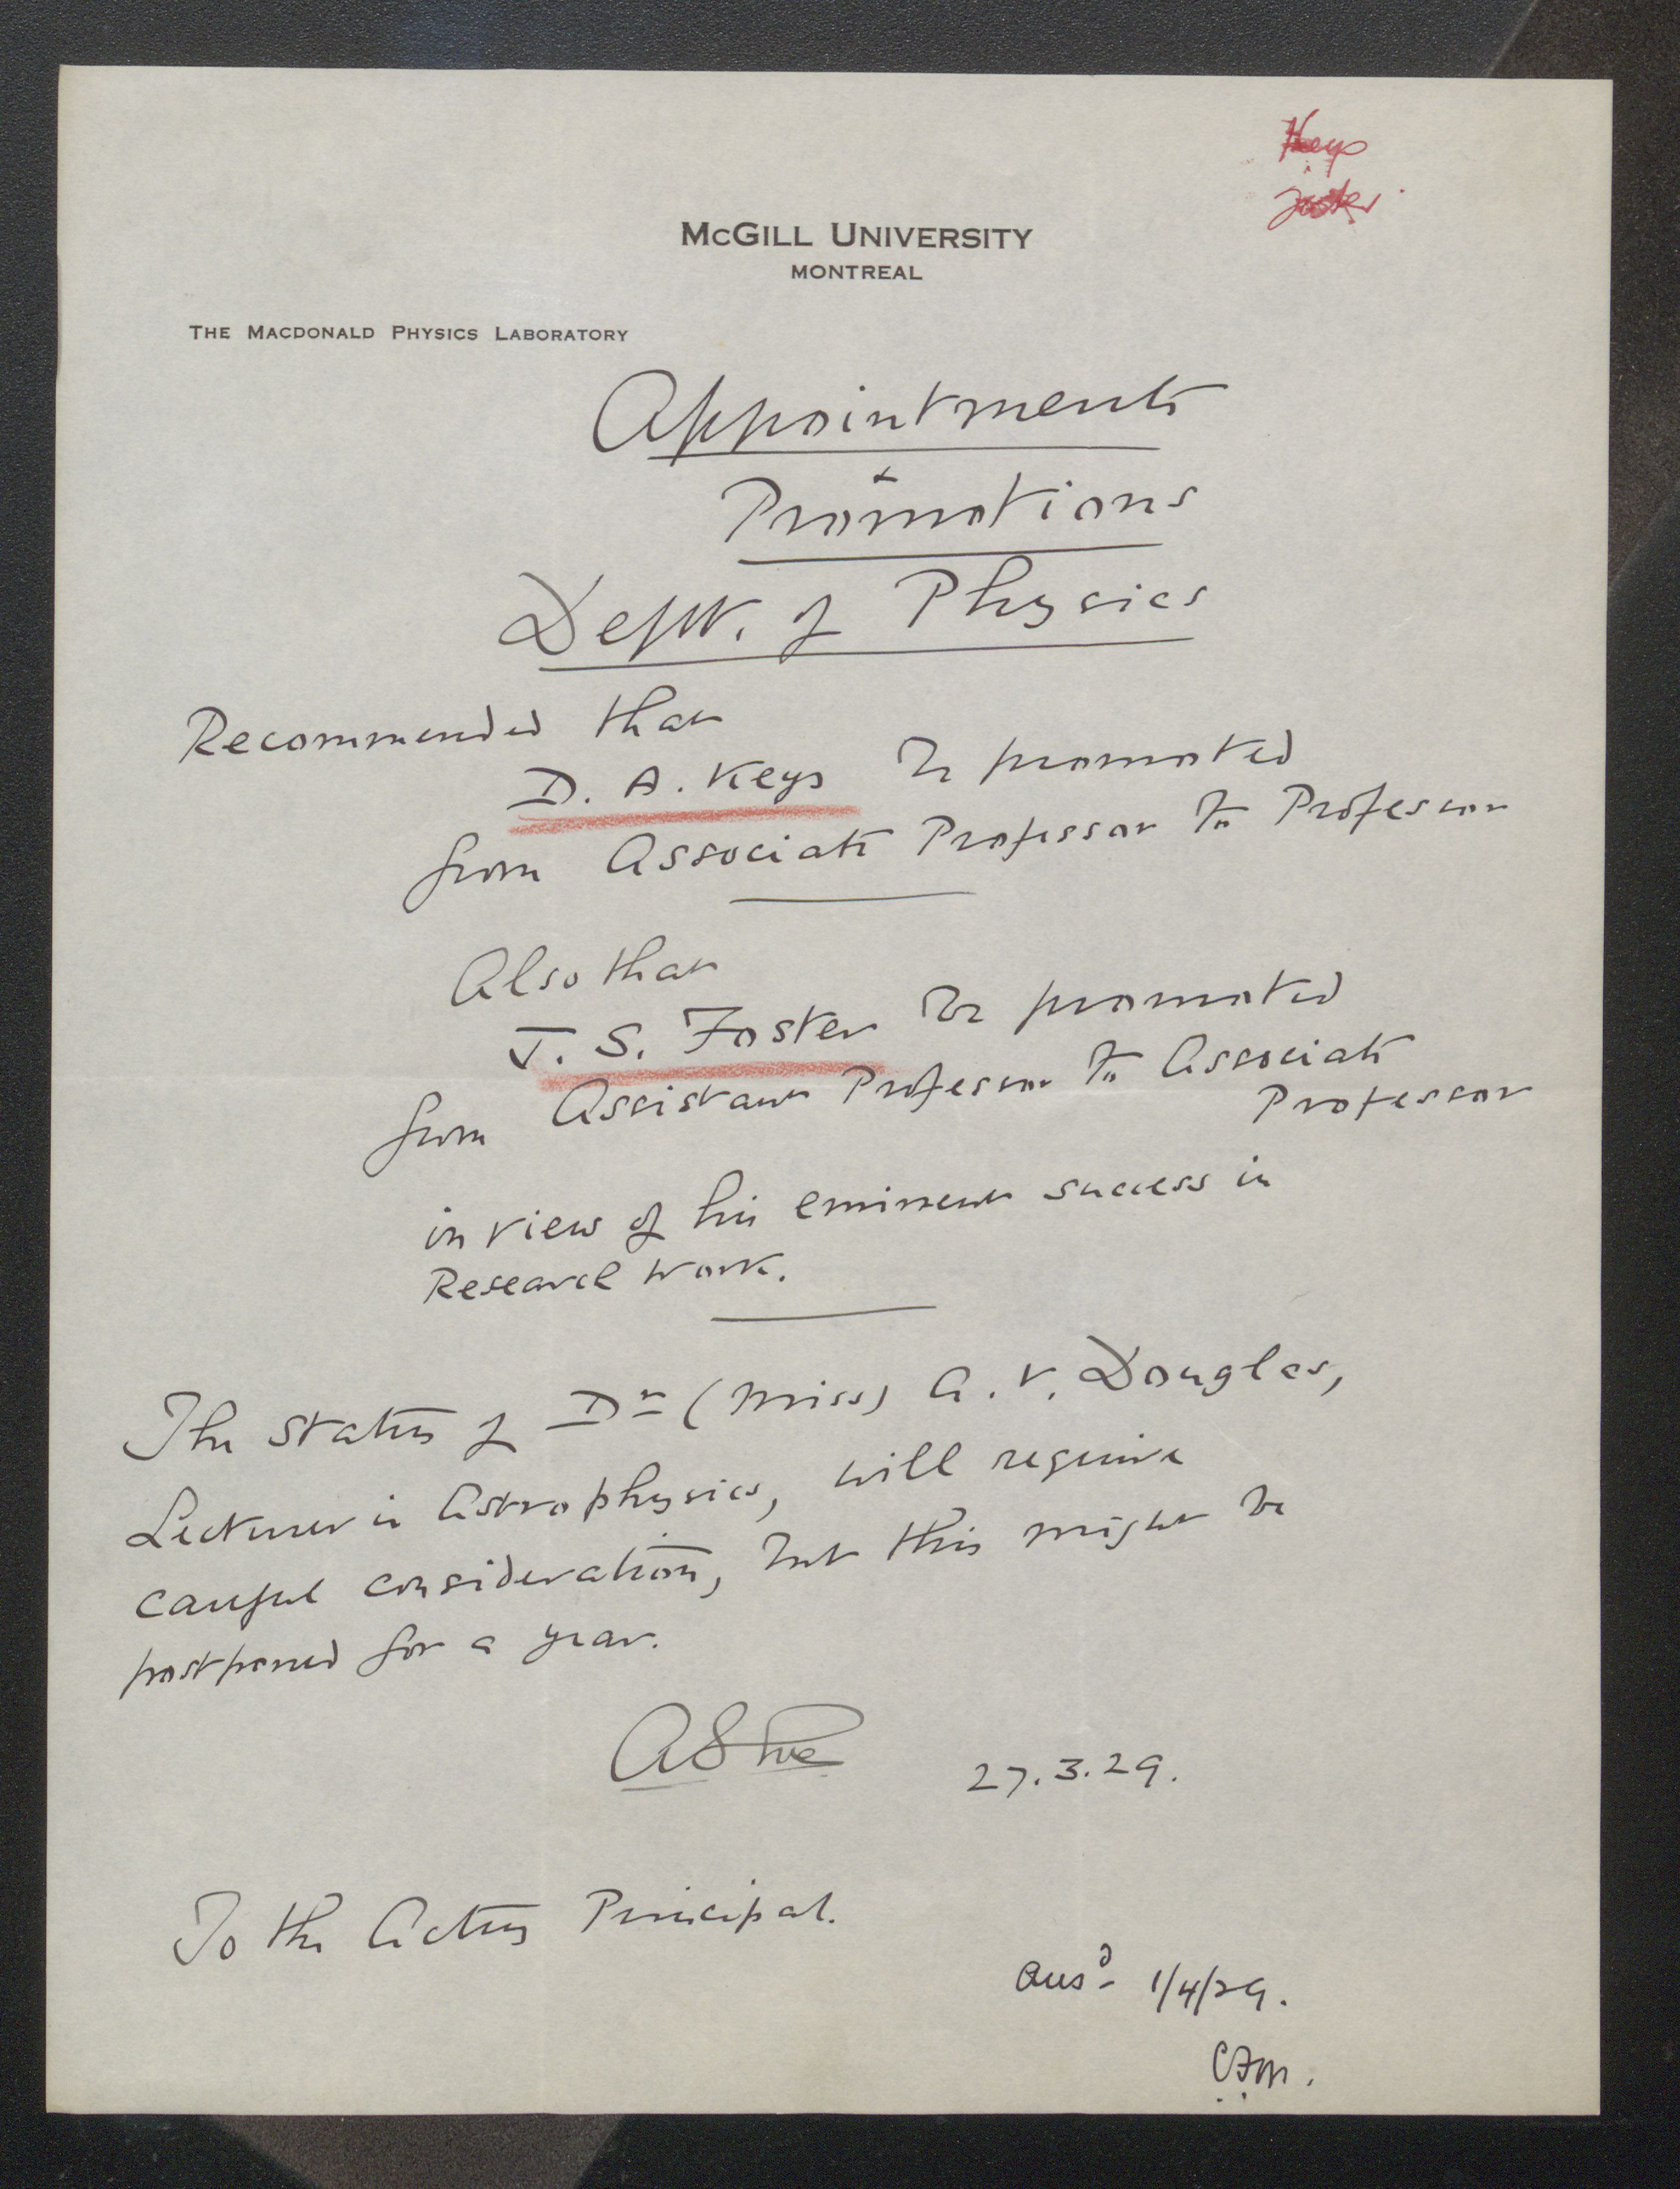 Keys
Foster
McGill University
Montreal
The Macdonald Physics Laboratory
Appointments
+
Promotions
Dept. of Physics
Recommended that
D. A. Keys be promoted
from Associate Professor to Professor
Also that
J. S. Foster be promoted
from Assistant Professor to Associate
Professor
in view of his eminent success in
Research work.
The status of Dr (Miss) A. V. Douglas,
Lecturer in Astrophysics, will require
careful consideration, but this might be
postponed for a year.
A S Eve
27.3.29.
To the Acting Principal.
Ansd - 1/4/29.
CFM.